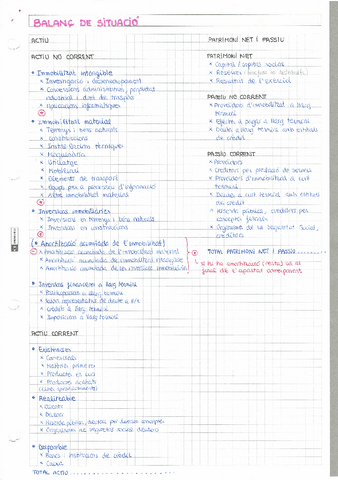 BALANÇ DE SITUACIÓ
ACTIU
ACTIU NO CORRENT
• Immobilitzat intangible
* Investigació i desenvolupament
* Concessions administratives, propietat
industrial i dret de traspàs
* Aplicacions informàtiques
• Immobilitzat material
* Terrenys i béns naturals
* Construccions
* Instal·lacions tècniques
* Maquinària
* Utillatge
* Mobiliari
* Elements de transport
* Equips per a processos d'informació
* Altre immobilitzat material
• Inversions immobiliàries
* Inversions en terrenys i béns naturals
* Inversions en construccions
• (Amortització acumulada de l'immobilitzat)
* Amortització acumulada de l'immobilitzat material
* Amortització acumulada de l'immobilitzat intangible
* Amortització acumulada de les inversions immobiliàries
• Inversions financeres a llarg termini
* Participacions a llarg termini
* Valors representatius de deute a ll/t
* Crèdits a llarg termini
* Imposicions a llarg termini
ACTIU CORRENT
• Existències
* Comercials
* Matèries primeres
* Productes en curs
* Productes acabats
• Realitzable
* Clients
* Deutors
* Hisenda pública, deutora per diversos conceptes
* Organismes de seguretat social deutors
• Disponible
* Bancs i institucions de crèdit
* Caixa
TOTAL ACTIU
PATRIMONI NET I PASSIU
PATRIMONI NET
* Capital / capital social
* Reserves
* Resultat de l'exercici
PASSIU NO CORRENT
* Proveïdors d'immobilitzat a llarg
termini
* Efectes a pagar a llarg termini
* Deutes a llarg termini amb entitats
de crèdit
PASSIU CORRENT
* Proveïdors
* Creditors per prestació de serveis
* Proveïdors d'immobilitzat a curt
termini
* Deutes a curt termini amb entitats
de crèdit
* Hisenda pública, creditora per
conceptes fiscals
* Organismes de la Seguretat Social,
creditors
TOTAL PATRIMONI NET I PASSIU